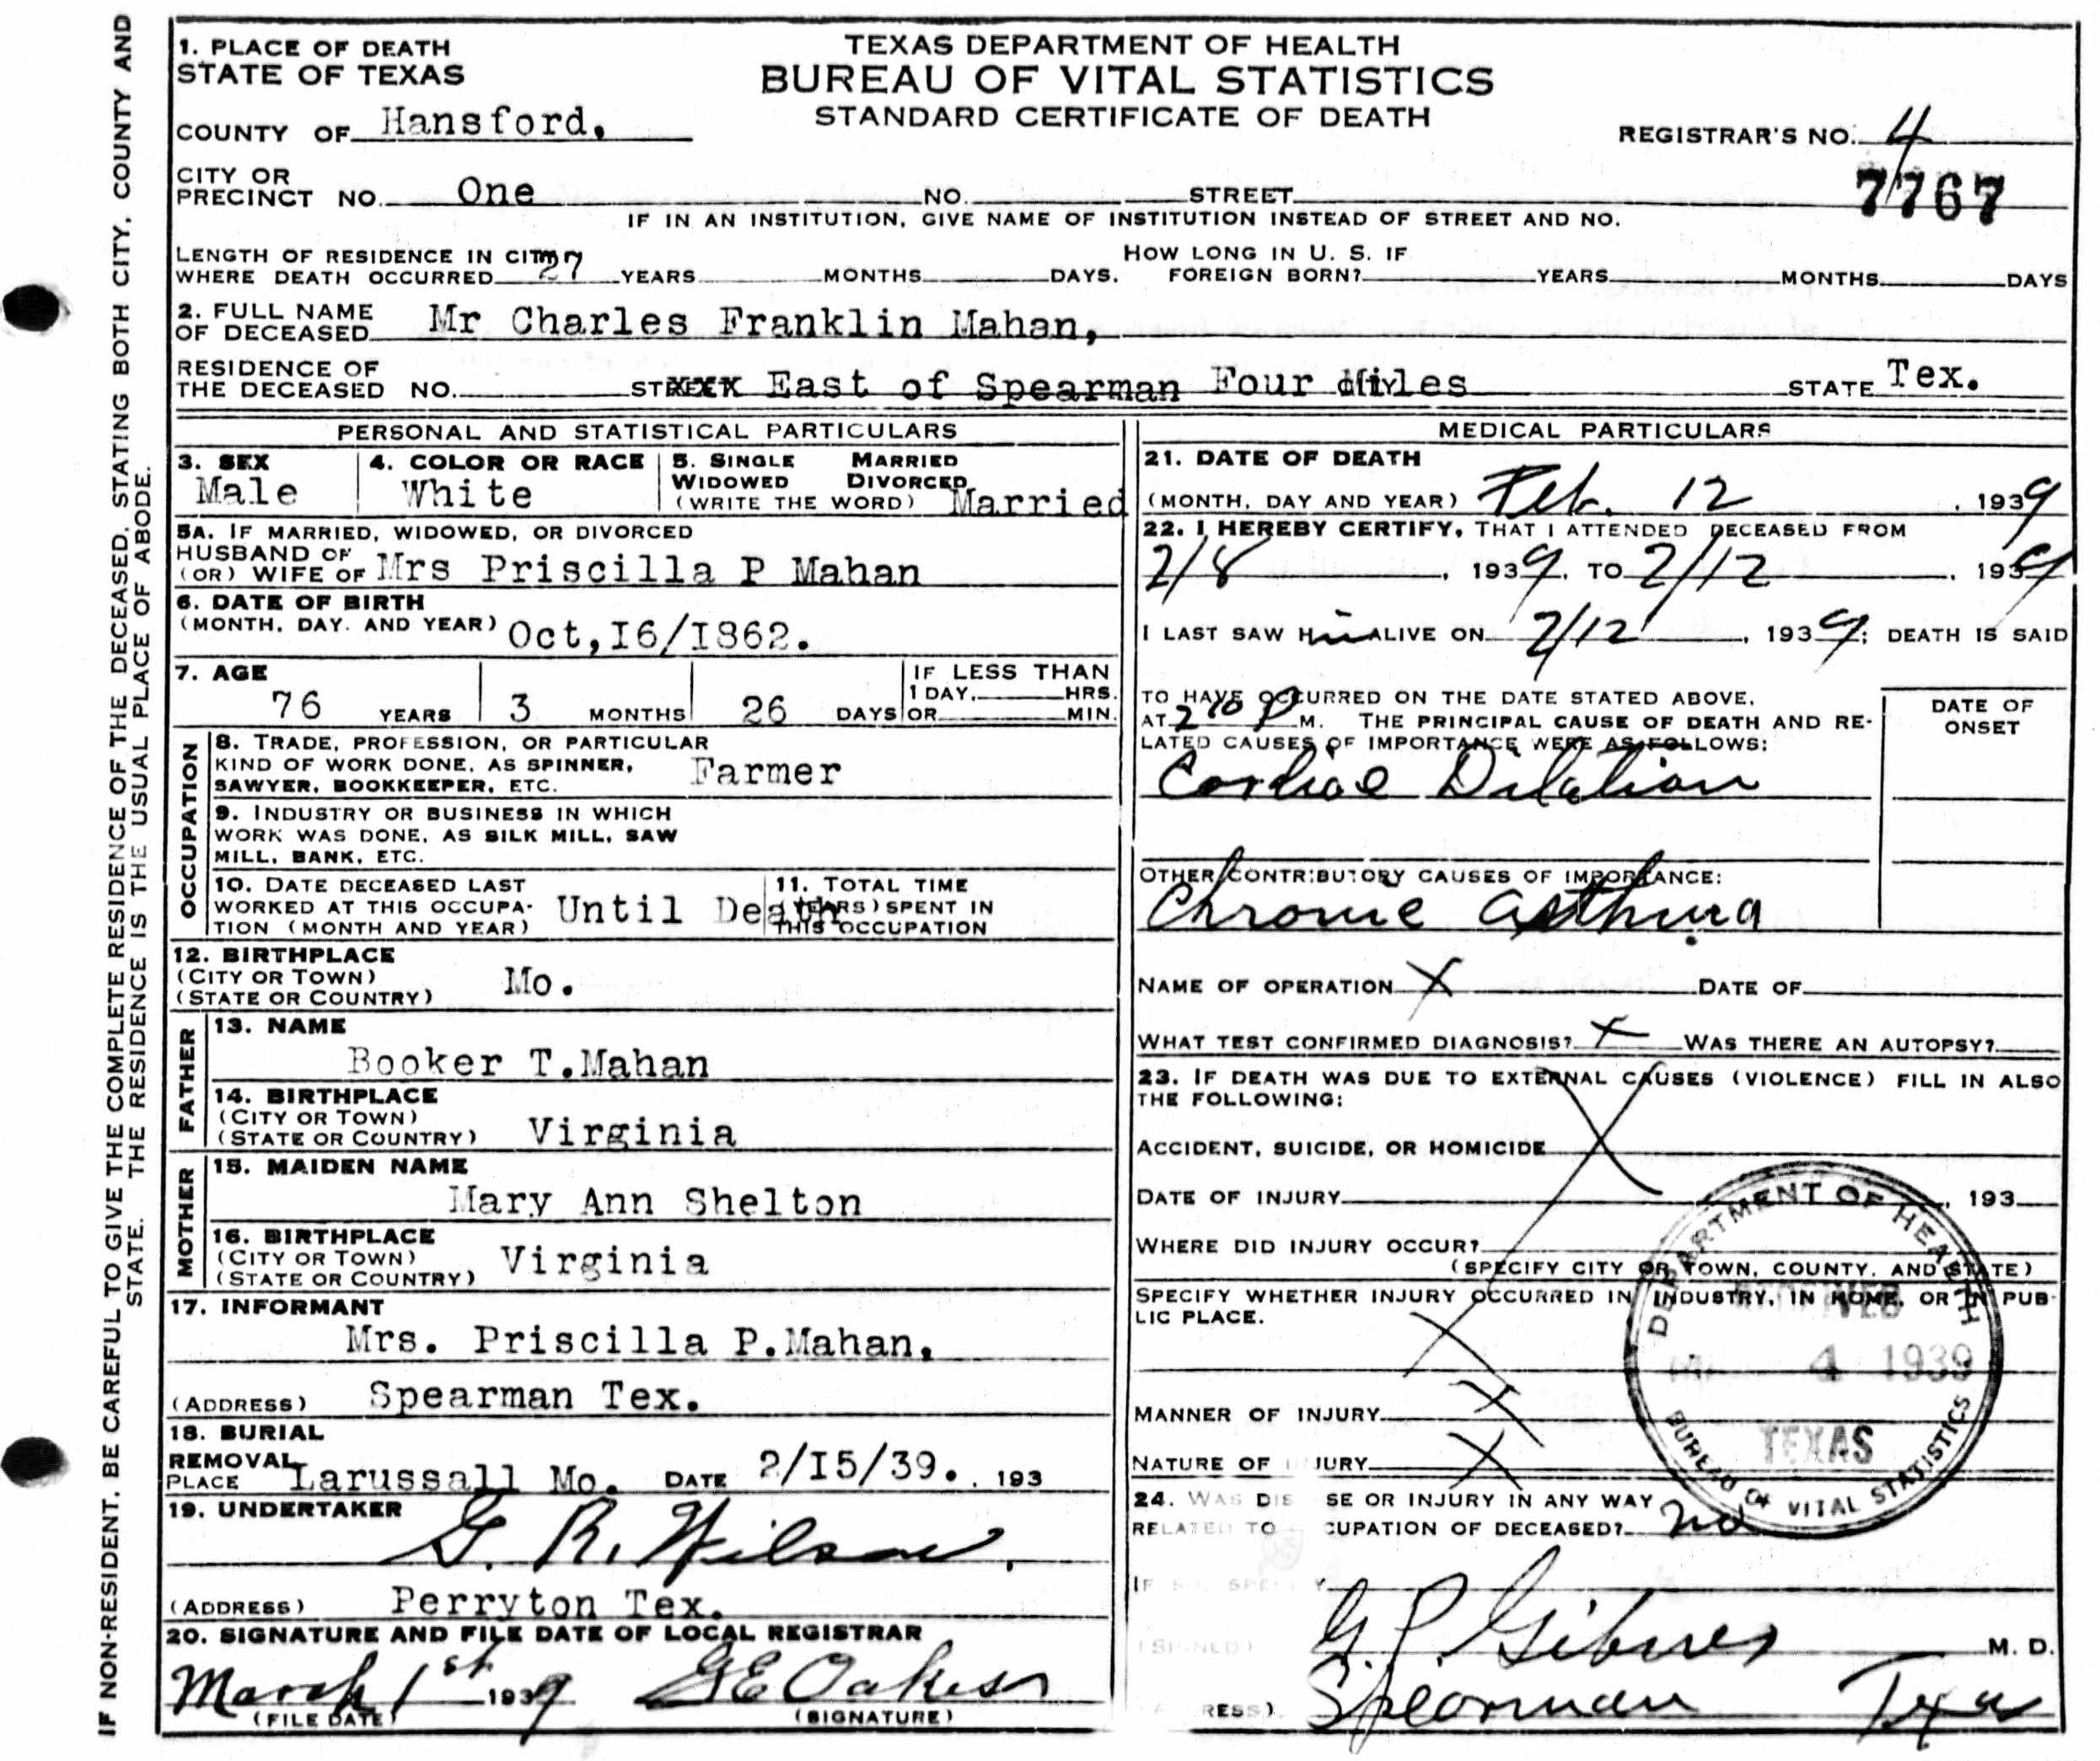 IF NON-RESIDENT, BE CAREFUL TO GIVE THE COMPLETE RESIDENCE OF THE DECEASED, STATING BOTH CITY, COUNTY AND
STATE. THE RESIDENCE IS THE USUAL PLACE OF ABODE.
TEXAS DEPARTMENT OF HEALTH
BUREAU OF VITAL STATISTICS
STANDARD CERTIFICATE OF DEATH
1. PLACE OF DEATH
STATE OF TEXAS
COUNTY OF Hansford,
REGISTRAR'S NO. 4
7767
CITY OR
PRECINCT NO. One NO. STREET
IF IN AN INSTITUTION, GIVE NAME OF INSTITUTION INSTEAD OF STREET AND NO.
LENGTH OF RESIDENCE IN CITY
WHERE DEATH OCCURRED 27 YEARS MONTHS DAYS.
HOW LONG IN U. S. IF
FOREIGN BORN? YEARS MONTHS DAYS
2. FULL NAME
OF DECEASED Mr Charles Franklin Mahan,
RESIDENCE OF
THE DECEASED NO. STXXXX East of Spearman Four Miles STATE Tex.
PERSONAL AND STATISTICAL PARTICULARS
3. SEX
Male
4. COLOR OR RACE
White
5. SINGLE MARRIED
WIDOWED DIVORCED
(WRITE THE WORD) Married
5A. IF MARRIED, WIDOWED, OR DIVORCED
HUSBAND OF
(OR) WIFE OF Mrs Priscilla P Mahan
6. DATE OF BIRTH
(MONTH, DAY. AND YEAR) Oct,I6/I862.
7. AGE
76 YEARS 3 MONTHS 26 DAYS
IF LESS THAN
1 DAY, HRS.
OR MIN.
OCCUPATION
8. TRADE, PROFESSION, OR PARTICULAR
KIND OF WORK DONE, AS SPINNER,
SAWYER, BOOKKEEPER, ETC. Farmer
9. INDUSTRY OR BUSINESS IN WHICH
WORK WAS DONE, AS SILK MILL, SAW
MILL, BANK, ETC.
10. DATE DECEASED LAST
WORKED AT THIS OCCUPA-
TION (MONTH AND YEAR) Until Death
11. TOTAL TIME
(YEARS) SPENT IN
THIS OCCUPATION
12. BIRTHPLACE
(CITY OR TOWN)
(STATE OR COUNTRY) Mo.
FATHER
13. NAME
Booker T.Mahan
14. BIRTHPLACE
(CITY OR TOWN)
(STATE OR COUNTRY) Virginia
MOTHER
15. MAIDEN NAME
Mary Ann Shelton
16. BIRTHPLACE
(CITY OR TOWN)
(STATE OR COUNTRY) Virginia
17. INFORMANT
Mrs. Priscilla P.Mahan,
(ADDRESS) Spearman Tex.
18. BURIAL
REMOVAL
PLACE Larussall Mo. DATE 2/I5/39. , 193
19. UNDERTAKER
G. R. Wilson,
(ADDRESS) Perryton Tex.
20. SIGNATURE AND FILE DATE OF LOCAL REGISTRAR
March 1st 1939 G E Oakes
(FILE DATE) (SIGNATURE)
MEDICAL PARTICULARS
21. DATE OF DEATH
(MONTH, DAY AND YEAR) Feb. 12 , 1939
22. I HEREBY CERTIFY, THAT I ATTENDED DECEASED FROM
2/8 , 1939, TO 2/12 , 1939
I LAST SAW Him ALIVE ON 2/12 , 1939; DEATH IS SAID
TO HAVE OCCURRED ON THE DATE STATED ABOVE,
AT 2 10 P M. THE PRINCIPAL CAUSE OF DEATH AND RE-
LATED CAUSES OF IMPORTANCE WERE AS FOLLOWS:
DATE OF
ONSET
Cardiac Dilation
OTHER CONTRIBUTORY CAUSES OF IMPORTANCE:
Chronic Asthma
NAME OF OPERATION X DATE OF
WHAT TEST CONFIRMED DIAGNOSIS? X WAS THERE AN AUTOPSY?
23. IF DEATH WAS DUE TO EXTERNAL CAUSES (VIOLENCE) FILL IN ALSO
THE FOLLOWING:
ACCIDENT, SUICIDE, OR HOMICIDE
DATE OF INJURY , 193
WHERE DID INJURY OCCUR?
(SPECIFY CITY OR TOWN, COUNTY, AND STATE)
SPECIFY WHETHER INJURY OCCURRED IN INDUSTRY, IN HOME, OR IN PUB-
LIC PLACE.
MANNER OF INJURY X
NATURE OF INJURY X
DEPARTMENT OF HEALTH
4 1939
TEXAS
BUREAU OF VITAL STATISTICS
24. WAS DIS SE OR INJURY IN ANY WAY
RELATED TO CUPATION OF DECEASED? no
IF SO, SPECIFY
(SIGNED) G. P. Gibner M. D.
RESS) Spearman Texas